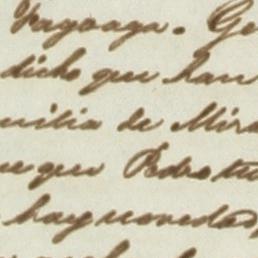 Fagoaga. Ge
dicho que han
milia de Mira
ue que Pedro tu
hay novedad,